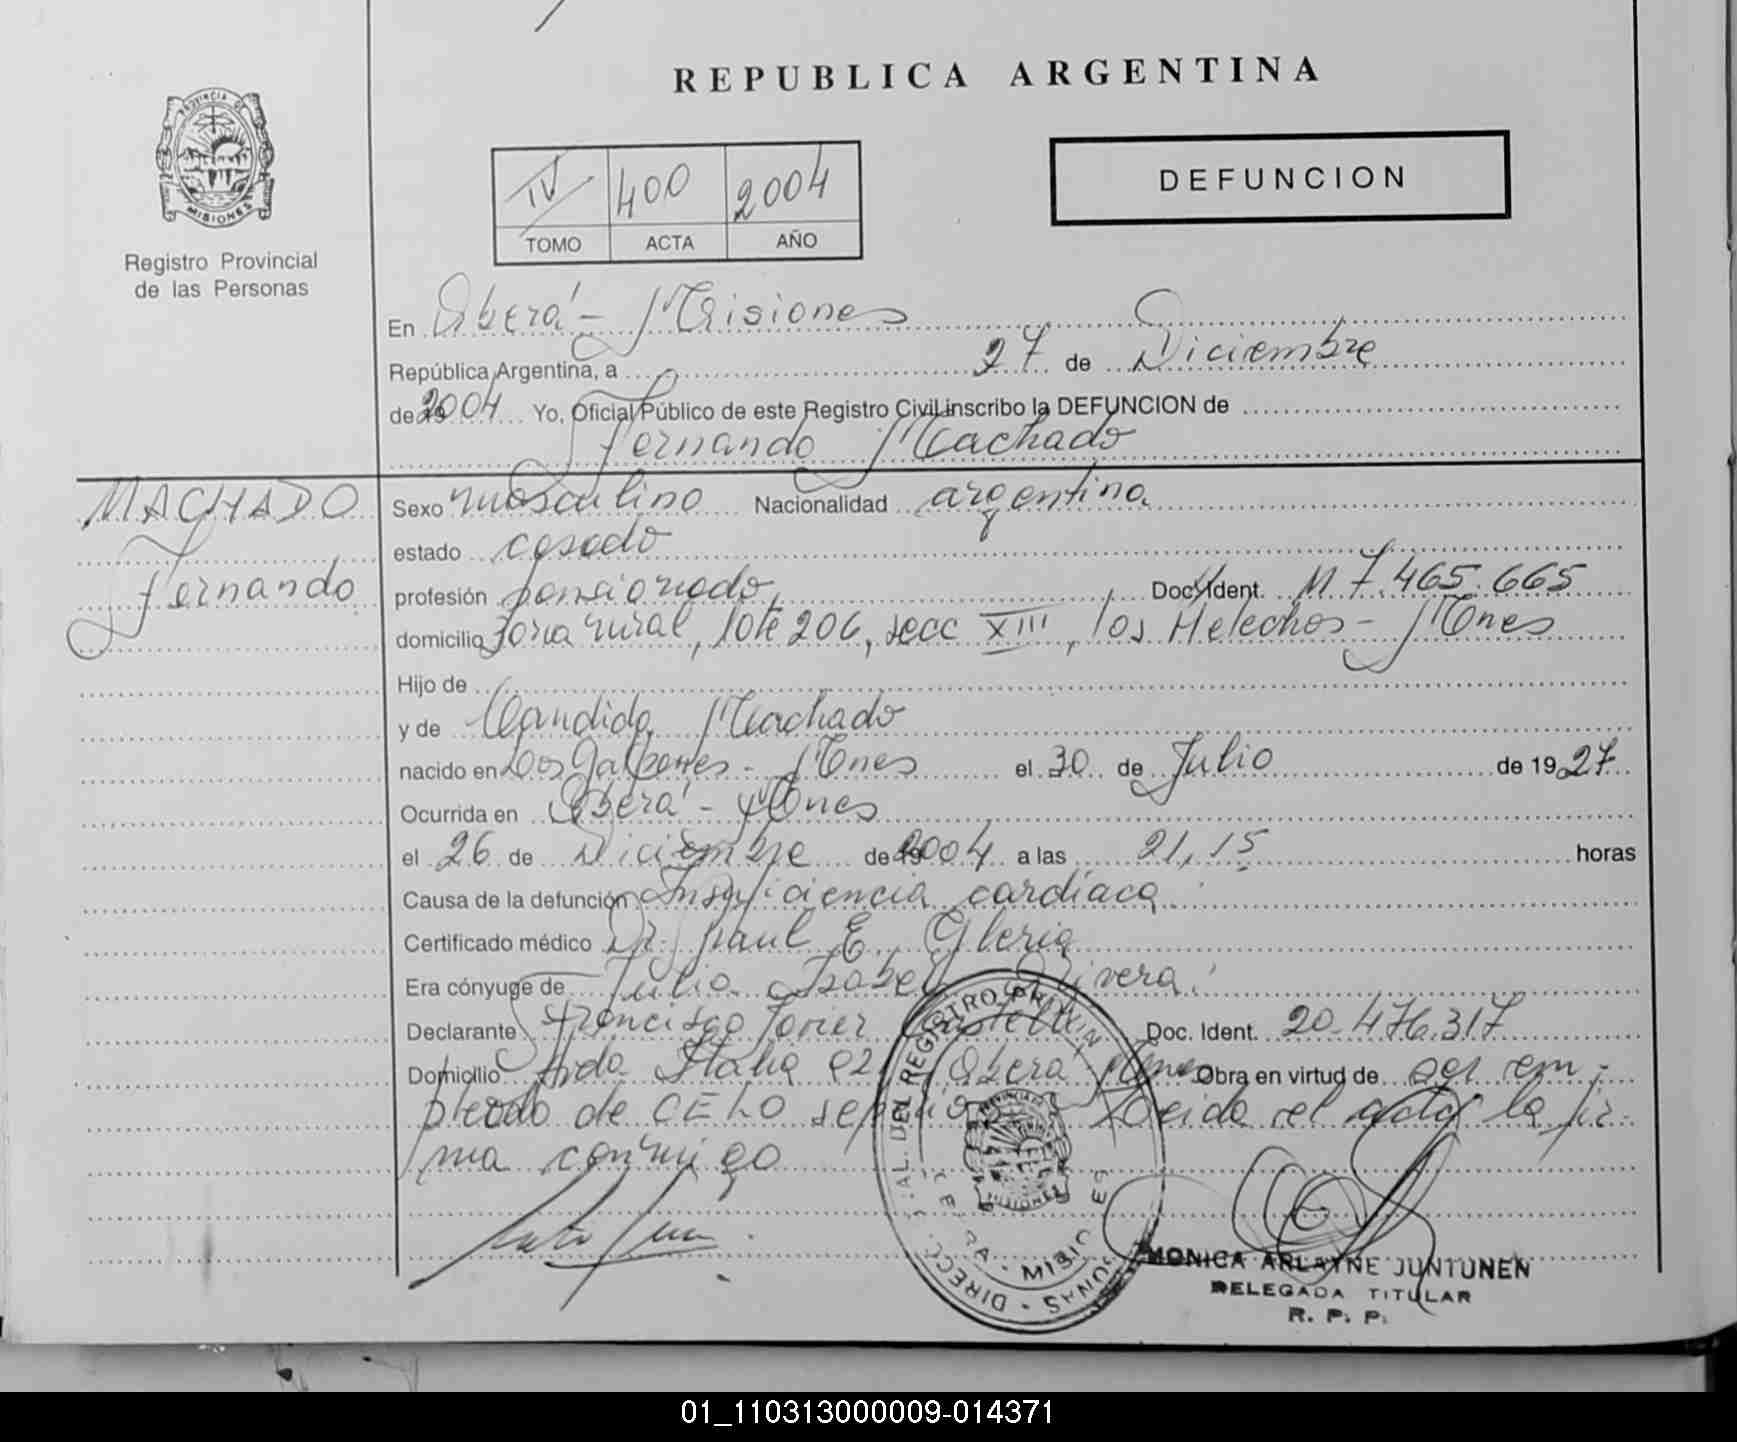 REPUBLICA ARGENTINA
PROVINCIA DE
MISIONES
Registro Provincial
de las Personas
IV 400 2004
TOMO ACTA AÑO
DEFUNCION
En Oberá - Misiones
República Argentina, a 27 de Diciembre
de 2004 Yo, Oficial Público de este Registro Civil inscribo la DEFUNCION de
Fernando Machado
MACHADO
Fernando
Sexo masculino Nacionalidad argentina
estado casado
profesión pensionado, Doc. Ident. M 7.465.665
domicilio Zona rural, lote 206, secc XIII, los Helechos - Mnes
Hijo de
y de Candida Machado
nacido en Los Galpones - Mnes el 30 de Julio de 1927
Ocurrida en Oberá - Mnes
el 26 de Diciembre de 2004 a las 21,15 horas
Causa de la defunción Insuficiencia cardíaca
Certificado médico Dr. Raul E.
Era cónyuge de Julia Isabel Rivera
Declarante Francisco Javier Doc. Ident. 20.476.317
Domicilio Avda Italia Oberá Mnes Obra en virtud de ser em-
pleado de CELO sepelio Leída el acta la fir-
ma conmigo
DIRECC. GRAL. DEL REGISTRO PROVIN
SONAS
OBERA - MISIONES
MISIONES
MONICA ARLAYNE JUNTUNEN
DELEGADA TITULAR
R. P. P.
01_110313000009-014371